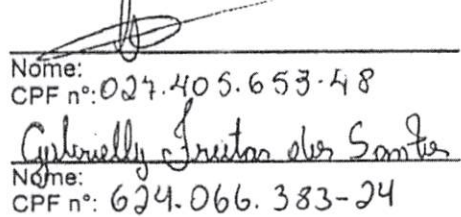 Nome:
CPF nº: 027.405.653-48
Gabrielly Freitas dos Santos
Nome:
CPF nº: 624.066.383-24